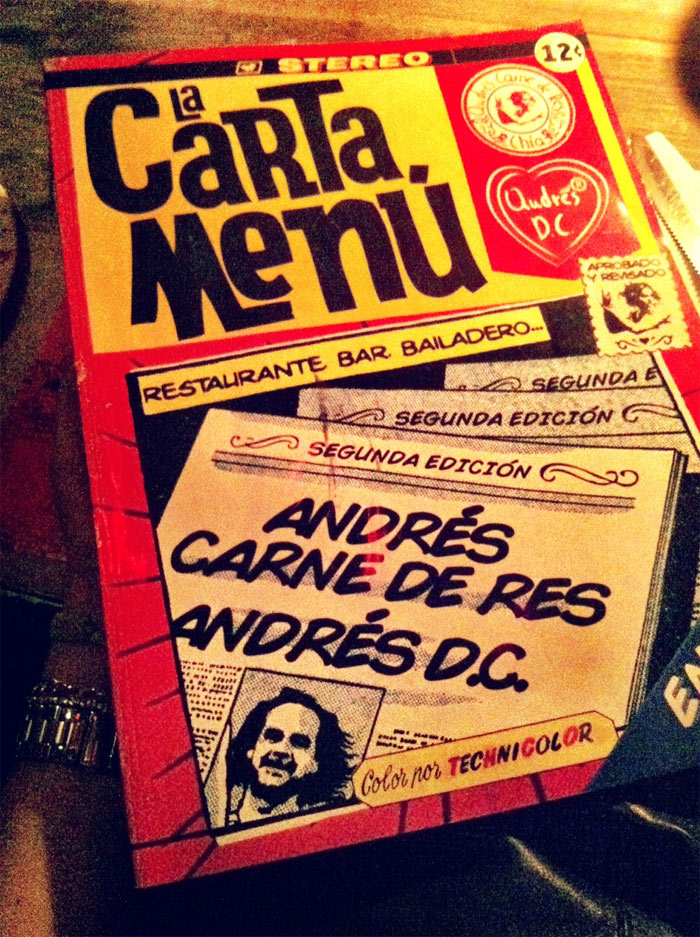 STEREO
12¢
La
Carta
Menú
Andrés Carne de Res
Chía
Andrés®
D.C
APROBADO
Y REVISADO
RESTAURANTE BAR. BAILADERO...
SEGUNDA E
SEGUNDA EDICIÓN
SEGUNDA EDICIÓN
ANDRÉS
CARNE DE RES
ANDRÉS D.C.
Color por TECHNICOLOR